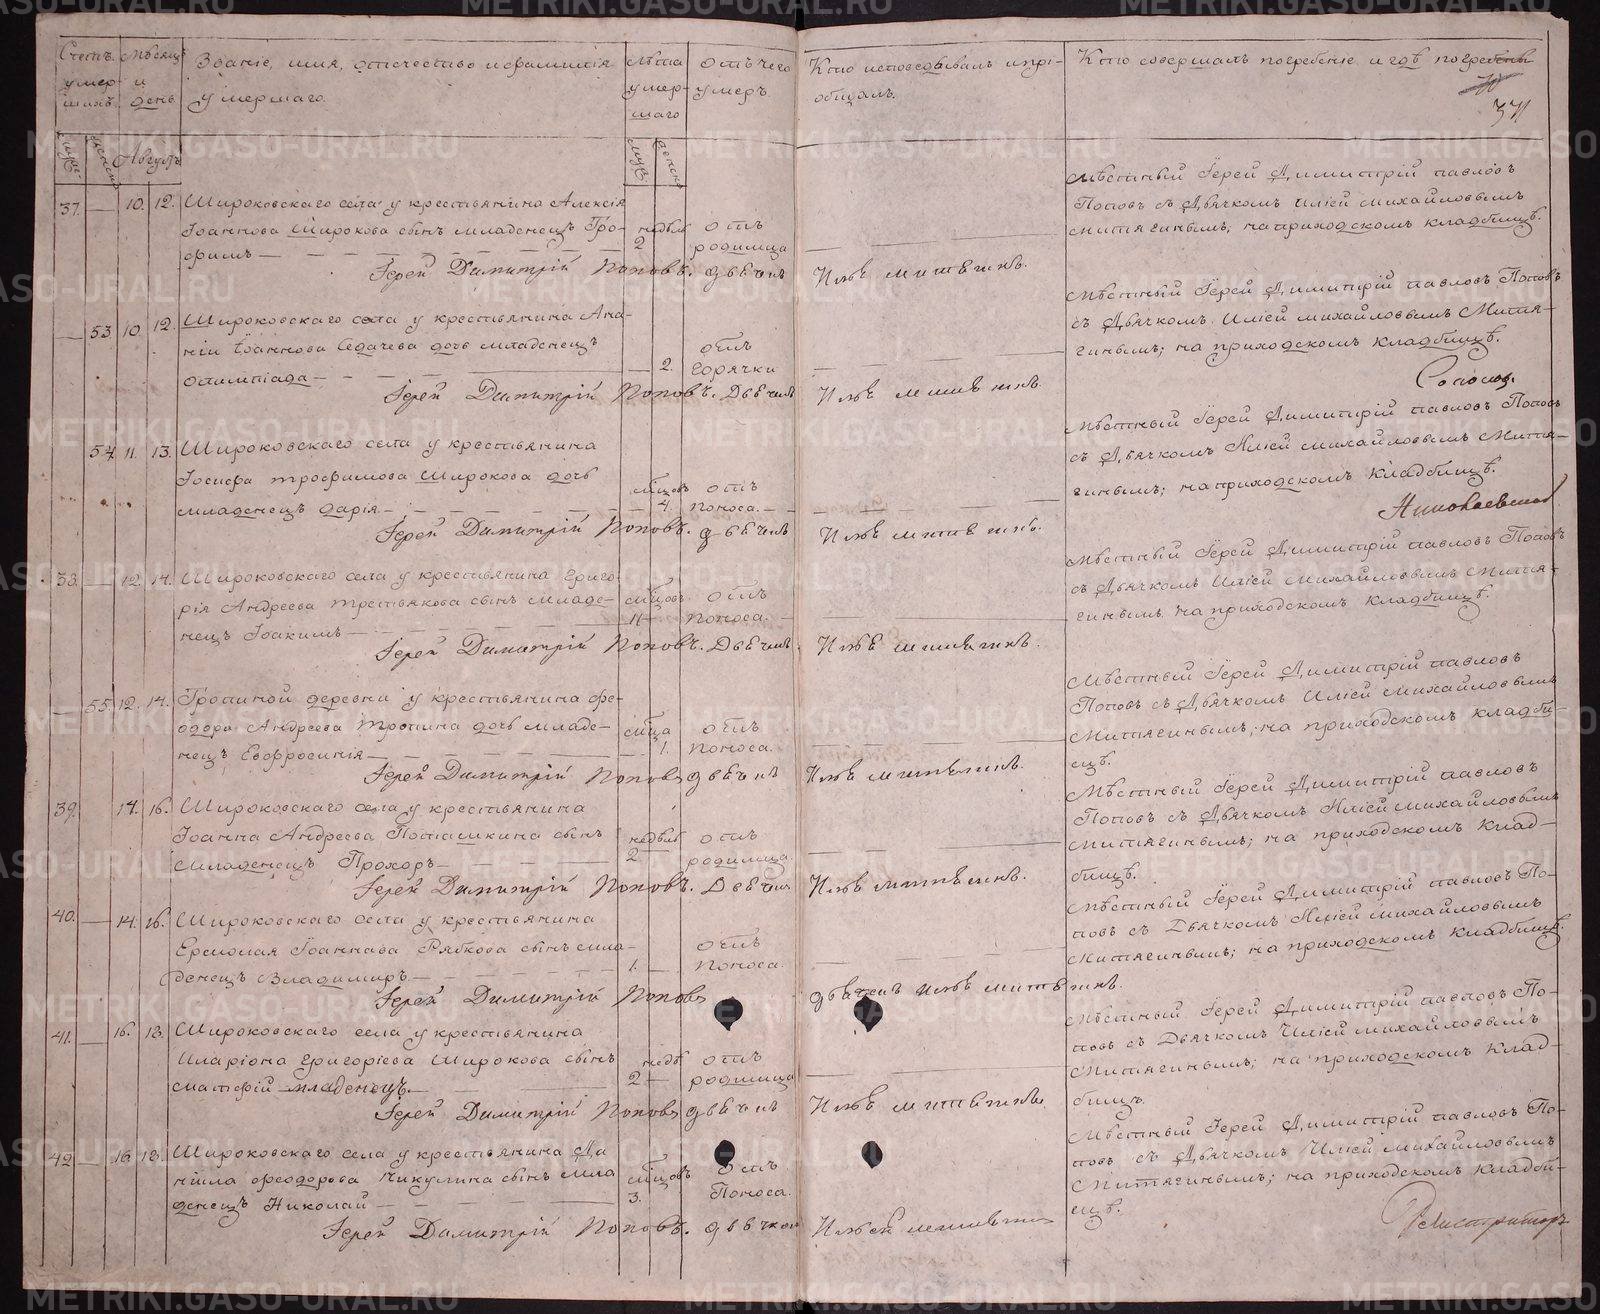 Счетъ умер- шихъ.
Мѣсяцъ и день
Званіе, имя, отчество и фамилія
умершаго.
Лѣта умер- шаго
отъ чего умеръ
Кто исповѣдывалъ и прі-
общалъ.
Кто совершалъ погребеніе и гдѣ погребены
371
Августъ
37. — 10. 12. Широковскаго села у крестьянина Алексія
Іоаннова Широкова сынъ младенецъ Тро-
фимъ
недѣль 2
отъ родимца
Мѣстный Іерей Димитрій Павловъ
Поповъ съ Дьячкомъ Иліей Михайловымъ
Митягинымъ; на приходскомъ кладбищѣ.
Іерей Димитрій Поповъ. дьячекъ Илья Митягинъ.
— 53 10 12. Широковскаго села у крестьянина Ана-
ніи Іоаннова Седачева дочь младенецъ
Олимпіада
2.
отъ горячки
Мѣстный Іерей Димитрій Павловъ Поповъ
съ Дьячкомъ Иліей Михайловымъ Митя-
гинымъ; на приходскомъ кладбищѣ.
Іерей Димитрій Поповъ. Дьячекъ Илья Митягинъ.
54. 11. 13. Широковскаго села у крестьянина
Іосифа Трофимова Широкова дочь
младенецъ Дарія
мѣцовъ 4.
отъ поноса.
Мѣстный Іерей Димитрій Павловъ Поповъ
съ Дьячкомъ Иліей Михайловымъ Митя-
гинымъ; на приходскомъ кладбищѣ.
Іерей Димитрій Поповъ. дьячекъ Илья Митягинъ.
38. — 12. 14. Широковскаго села у крестьянина Григо-
рія Андреева Третьякова сынъ младе-
нецъ Іоакимъ
мѣцовъ
отъ поноса.
Мѣстный Іерей Димитрій Павловъ Поповъ
съ Дьячкомъ Иліей Михайловымъ Митя-
гинымъ на приходскомъ кладбищѣ.
Іерей Димитрій Поповъ. Дьячекъ Илья Митягинъ.
— 55. 12. 14. Тропиной деревни у крестьянина Фе-
одора Андреева Тропина дочь младе-
нецъ Евфросинія
мѣца 1.
отъ поноса.
Мѣстный Іерей Димитрій Павловъ
Поповъ съ Дьячкомъ Иліей Михайловымъ
Митягинымъ; на приходскомъ кладби-
щѣ.
Іерей Димитрій Поповъ дьячекъ Илья Митягинъ.
39. 14. 16. Широковскаго села у крестьянина
Іоанна Андреева Поташкина сынъ
Младенецъ Прохоръ
недѣль 2
отъ родимца.
Мѣстный Іерей Димитрій Павловъ
Поповъ съ Дьячкомъ Иліей Михайловымъ
Митягинымъ; на приходскомъ клад-
бищѣ.
Іерей Димитрій Поповъ. Дьячекъ Илья Митягинъ.
40. — 14. 16. Широковскаго села у крестьянина
Ермолая Іоаннова Рябкова сынъ мла-
денецъ Владимиръ
1. —
отъ поноса.
Мѣстный Іерей Димитрій Павловъ По-
повъ съ Дьячкомъ Иліей Михайловымъ
Митягинымъ; на приходскомъ кладбищѣ.
Іерей Димитрій Поповъ дьячекъ Илья Митягинъ.
41. — 16. 18. Широковскаго села у крестьянина
Иларіона Григоріева Широкова сынъ
Матфій младенецъ.
недѣ 2 —
отъ родимца
Мѣстный Іерей Димитрій Павловъ По-
повъ съ Дьячкомъ Иліей Михайловымъ
Митягинымъ; на приходскомъ клад-
бищѣ.
Іерей Димитрій Поповъ дьячекъ Илья Митягинъ
42 — 16 18. Широковскаго села у крестьянина Да
ніила Феодорова Чикулина сынъ мла
денецъ Николай
мѣцовъ 3.
отъ Поноса.
Мѣстный Іерей Димитрій Павловъ По-
повъ съ Дьячкомъ Иліей Михайловымъ
Митягинымъ; на приходскомъ кладби-
щѣ.
Іерей Димитрій Поповъ. дьячекъ Илья Митягинъ
Регистраторъ
METRIKI.GASO-URAL.RU